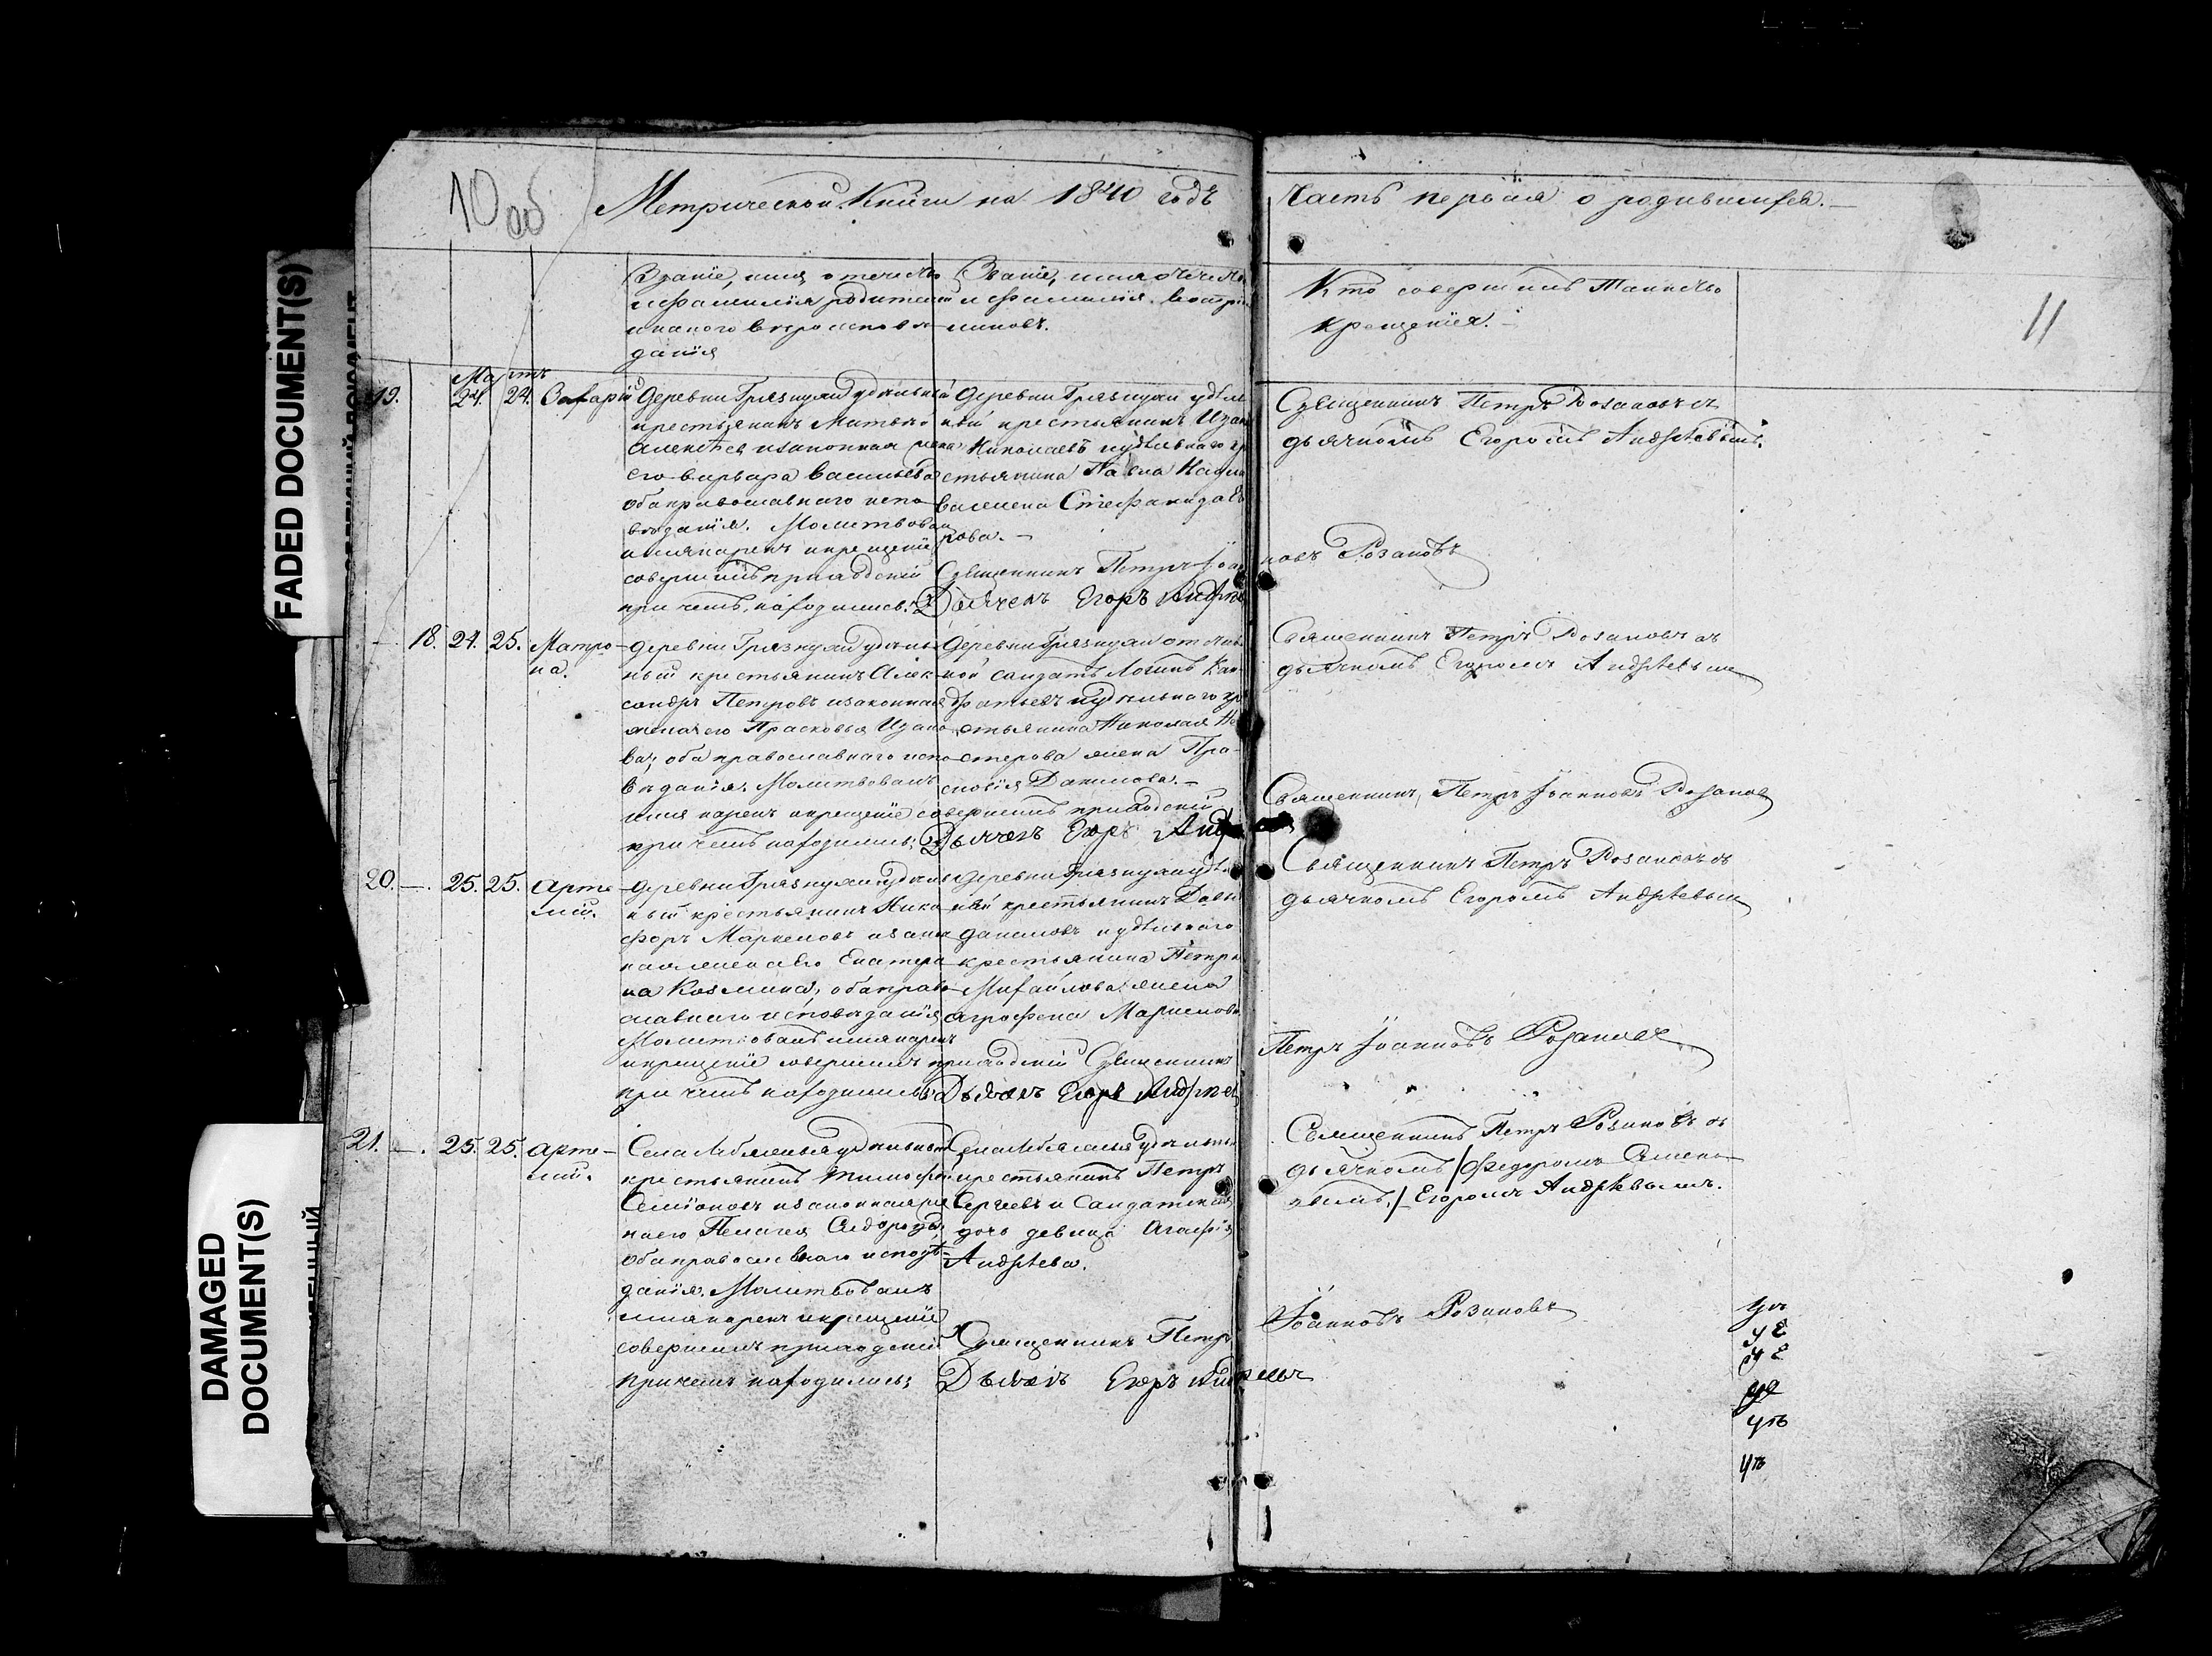 10 об
Метрической Книги на 1840 годъ
Часть первая о родившихся.
11
Званіе, имя, отечество
и фамилія родителей
и какого вѣроисповѣ-
данія
Званіе, имя отечество
и фамилія воспріе-
мниковъ.
Кто совершилъ Таинство
крещенія.
Мартъ
19. 24. 24. Захарій
Деревни Грязнухи удѣльный
крестьянинъ Матвѣй
Алексѣевъ и законная жена
его Варвара Васильева
оба православнаго испо-
вѣданія. Молитвовалъ
имя нарекъ и крещеніе
совершилъ приходскій
при чемъ находились:
Деревни Грязнухи удѣль
ный крестьянинъ Иванъ
Николаевъ и удѣльнаго кр
естьянина Павла
жена Стефанида
рова.
Священникъ Петръ Іоан
новъ Розановъ
Дьячекъ Егоръ Андрѣев
Священникъ Петръ Розановъ съ
дьячкомъ Егоромъ Андрѣевымъ.
18. 24. 25. Матро-
на.
Деревни Грязнухи удѣль-
ный крестьянинъ Алек-
сандръ Петровъ и законная
жена его Прасковья Ивано-
ва; оба православнаго испо-
вѣданія. Молитвовалъ
имя нарекъ и крещеніе совершилъ приходскій
при чемъ находились:
Деревни Грязнухи
солдатъ Логинъ Кон
дратьевъ и удѣльнаго кр
естьянина Николая Не
стерова жена Пра-
сковія Данилова.
Священникъ, Петръ Іоанновъ Розановъ
Дьячекъ Егоръ Андр
Священникъ Петръ Розановъ съ
дьячкомъ Егоромъ Андрѣевымъ
20. —. 25. 25. Арте-
мій.
Деревни Грязнухи удѣль
ный крестьянинъ Ники
форъ Маркеловъ и закон
ная жена его Екатери
на Козмина; оба право-
славнаго исповѣданія
Молитвовалъ имя нарекъ
и крещеніе совершилъ приходскій Священникъ
при чемъ находились:
Деревни Грязнухи удѣ
ный крестьянинъ
Даниловъ и удѣльнаго
крестьянина Петра
Михайлова жена
Агрофена Маркелова
Петръ Іоанновъ Розановъ
Дьячекъ Егоръ Андрѣев
Священникъ Петръ Розановъ съ
дьячкомъ Егоромъ Андрѣевымъ
21. —. 25. 25. Арте-
мій.
Села удѣльный
крестьянинъ Тимофей
Семіоновъ и законная же
на его Пелагея Сидорова;
оба православнаго исповѣ-
данія. Молитвовалъ
имя нарекъ и крещеніе
совершилъ приходскій
при чемъ находились:
Села удѣльны
крестьянинъ Петръ
Сергѣевъ и солдатская
дочь девица Агафія
Андрѣева.
Священникъ Петръ
Іоанновъ Розановъ
Дьячекъ Егоръ Андреевъ
Священникъ Петръ Розановъ съ
дьячкомъ / Федоромъ Семено-
вымъ, / Егоромъ Андрѣевымъ.
FADED DOCUMENT(S)
DAMAGED
DOCUMENT(S)